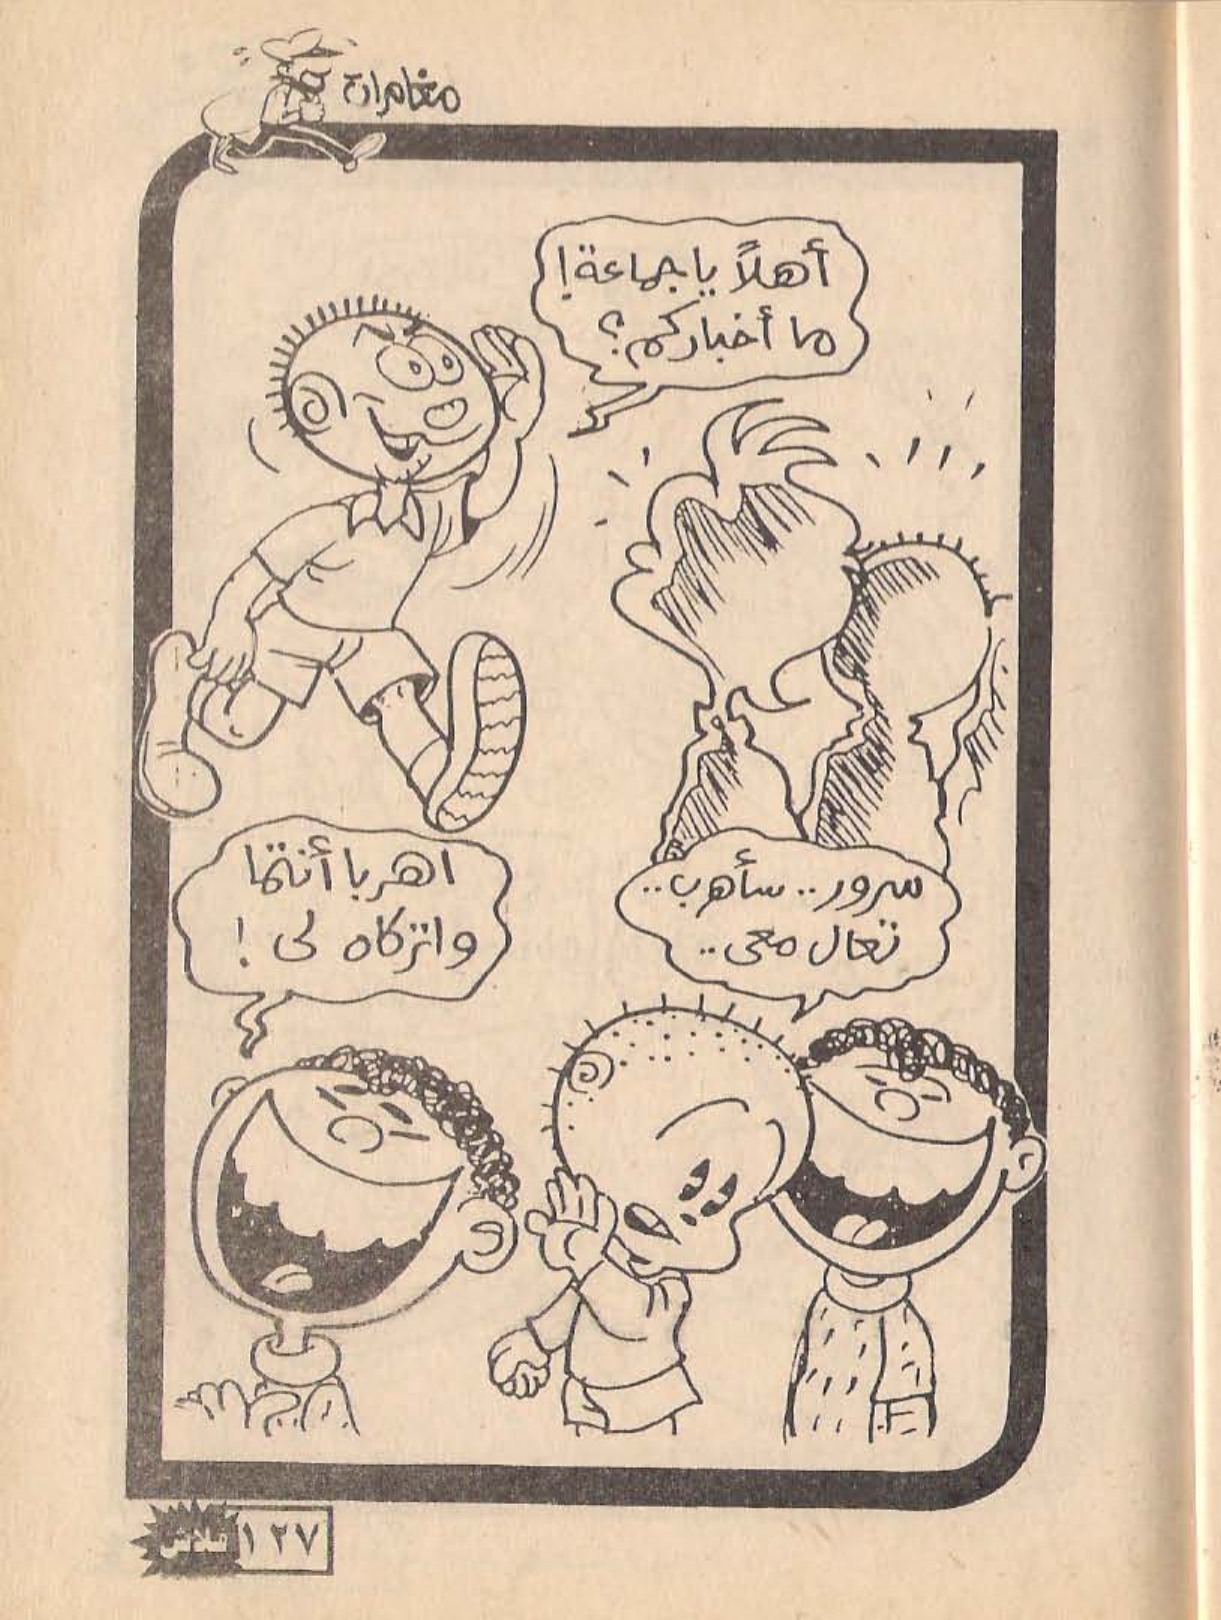 مغامرات
أهلاً ياجماعة!
ما أخباركم؟
سرور.. سأهرب..
تعال معى..
اهربا أنتما
واتركاه لى !
١٢٧
فلاش